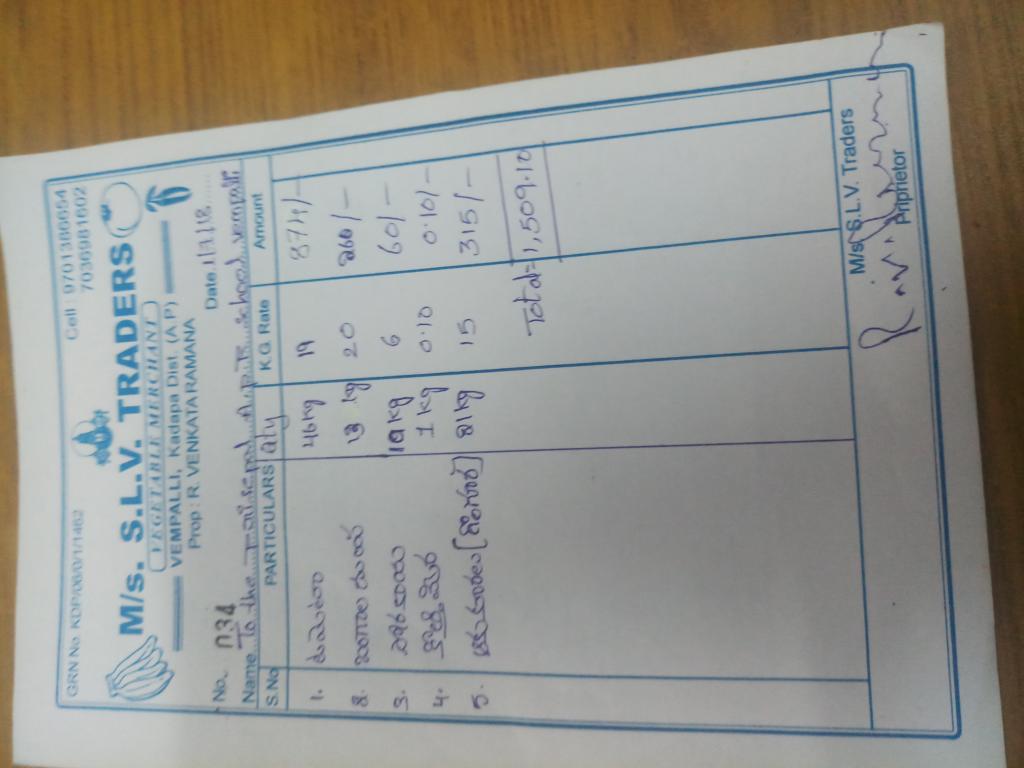 GRN No. KDP/06/01/1462 Cell : 9701386654
7036981602
M/s. S.L.V. TRADERS
VEGETABLE MERCHANT
VEMPALLI, Kadapa Dist. (A.P)
Prop : R. VENKATA RAMANA
No. 034 Date 1/7/18
Name To the A.P.R. School Vempalli
S.No PARTICULARS Qty KG Rate Amount
1. టమాటా 46kg 19 874/-
2. బంగాలదుంప 13 kg 20 260/-
3. 10 kg 6 60/-
4. 1 kg 0.10 0.10/-
5. 21 kg 15 315/-
Total = 1,509.10
M/s. S.L.V. Traders
Priprietor